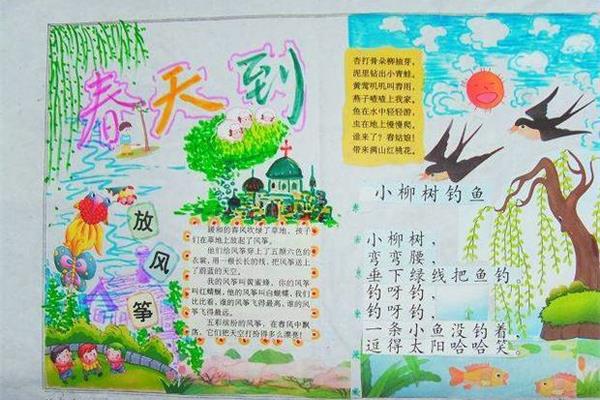 春天到
放
风
筝
暖和的春风吹绿了草地，孩子
们在草地上放起了风筝。
他们给风筝穿上了五颜六色的
衣裳，用一根长长的线，把风筝送上
了蔚蓝的天空。
我的风筝叫黄蜜蜂，你的风筝
叫红蜻蜓，他的风筝叫白蝴蝶，我们
比比看，谁的风筝飞得最高，谁的风
筝飞得最远。
五彩缤纷的风筝，在春风中飘
荡，它们把天空打扮得多么漂亮！
杏打骨朵柳抽芽，
泥里钻出小青蛙，
黄莺叽叽叫春雨，
燕子喳喳上我家，
鱼在水中轻轻游，
虫在地上慢慢爬。
谁来了？春姑娘！
带来满山红桃花。
小柳树钓鱼
小柳树，
弯弯腰，
垂下绿线把鱼钓，
钓呀钓，
钓呀钓，
一条小鱼没钓着，
逗得太阳哈哈笑。